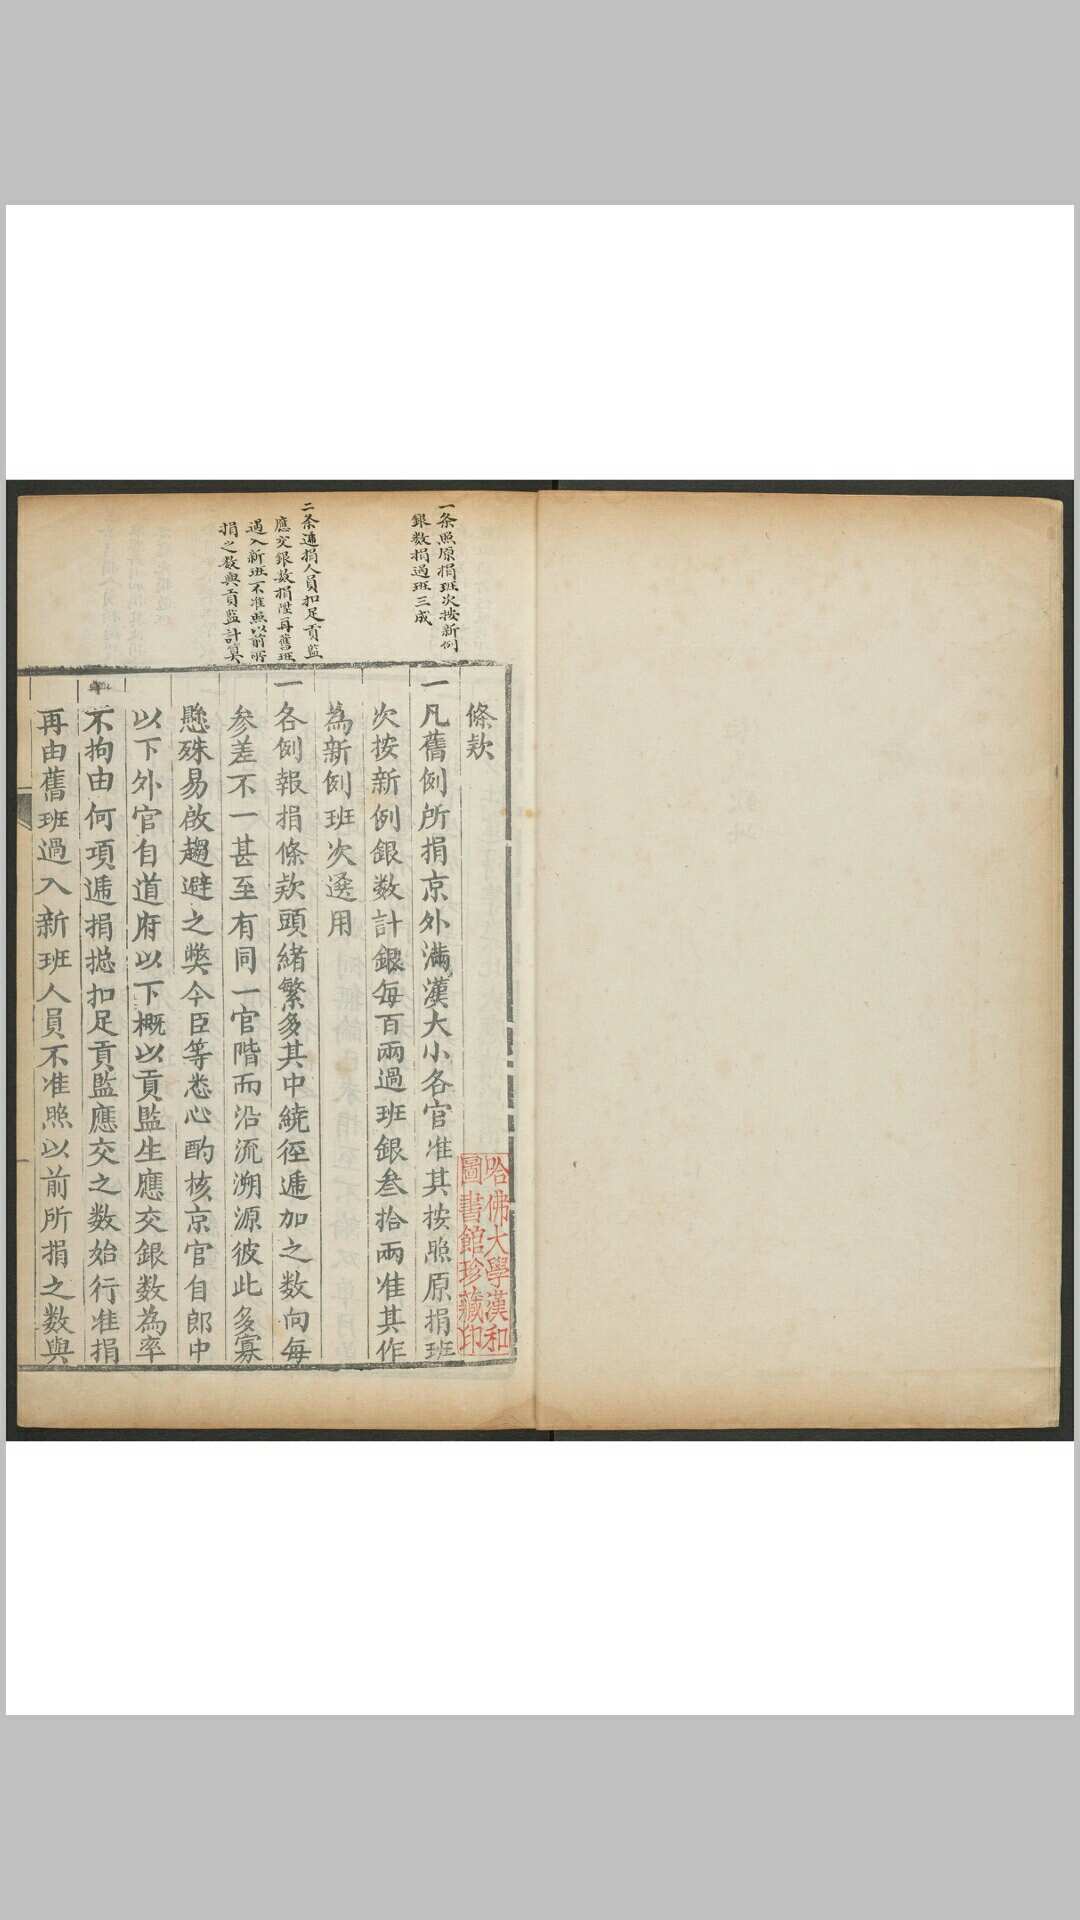 一条照原捐班次按新例
銀数捐過班三成
二条遞捐人員扣足貢監
應交銀数捐陞再舊班
過入新班不准照以前所
捐之数與貢監計算
條欵
一凡舊例所捐京外滿漢大小各官准其按照原捐班
次按新例銀数計銀每百兩過班銀叁拾兩准其作
為新例班次選用
一各例報捐條欵頭緒繁多其中繞徑遞加之数向每
參差不一甚至有同一官階而沿流溯源彼此多寡
懸殊易啟趨避之獘今臣等悉心酌核京官自郎中
以下外官自道府以下概以貢監生應交銀数為率
不拘由何項遞捐揔扣足貢監應交之数始行准捐
再由舊班過入新班人員不准照以前所捐之数與
哈佛大學漢和
圖書館珍藏印